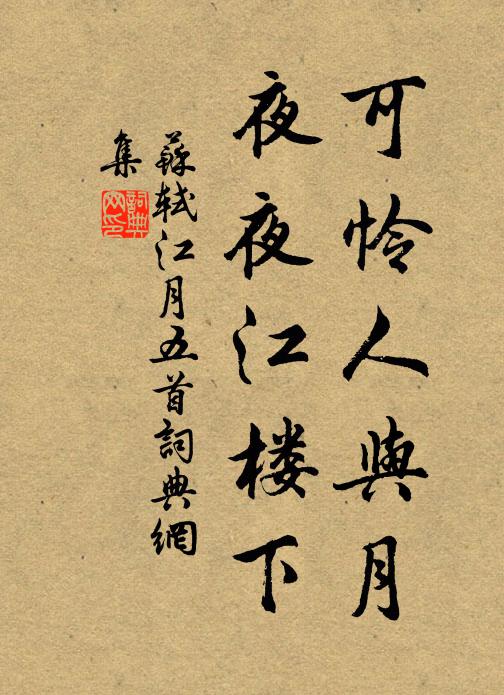 可怜人與月
夜夜江楼下
蘇軾江月五首詞典網
集
詞典
网印